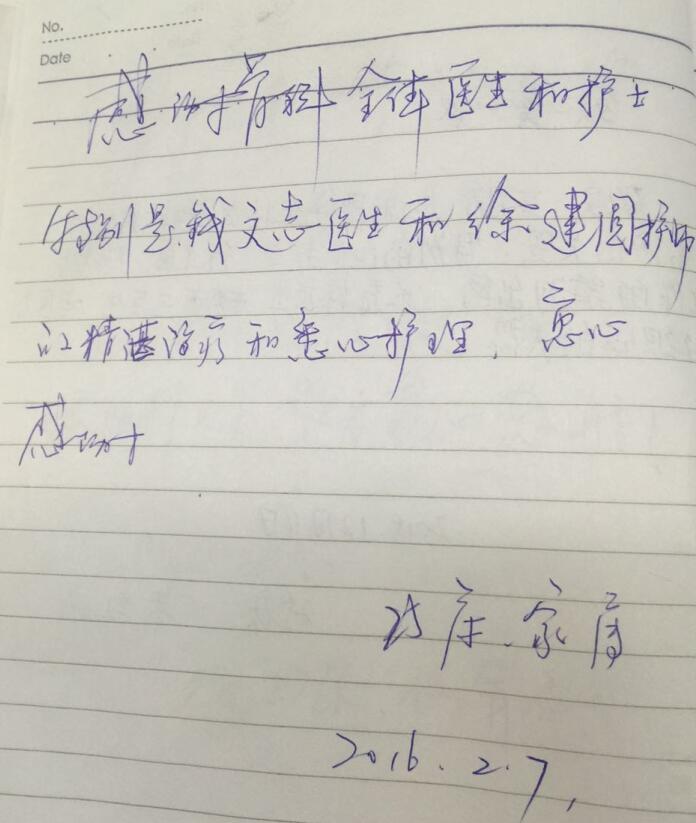 No.
Date
感谢骨科全体医生和护士
特别是钱文志医生和徐建国护师
的精湛治疗和悉心护理，衷心
感谢
25床、家属
2016.2.7,